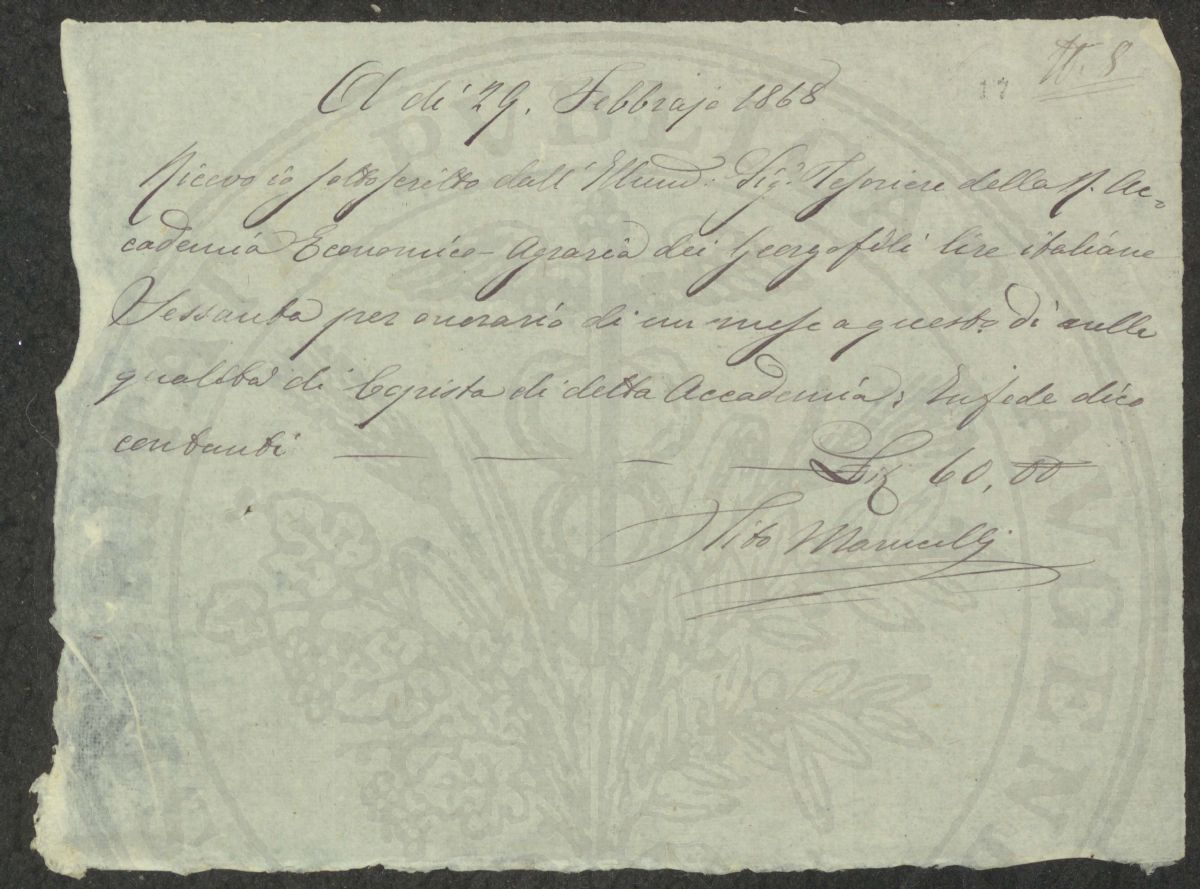 N. 8
17
A dì 29. Febbrajo 1868
Ricevo io sottoscritto dall' Illmo. Sig. Tesoriere della R. Ac=
cademia Economico-Agraria dei Georgofili lire italiane
Sessanta per onorario di un mese a questo dì nella
qualità di Copista di detta Accademia; E in fede dico
contanti — — — — 60,00
Tito
PVBLICAE AVGEN